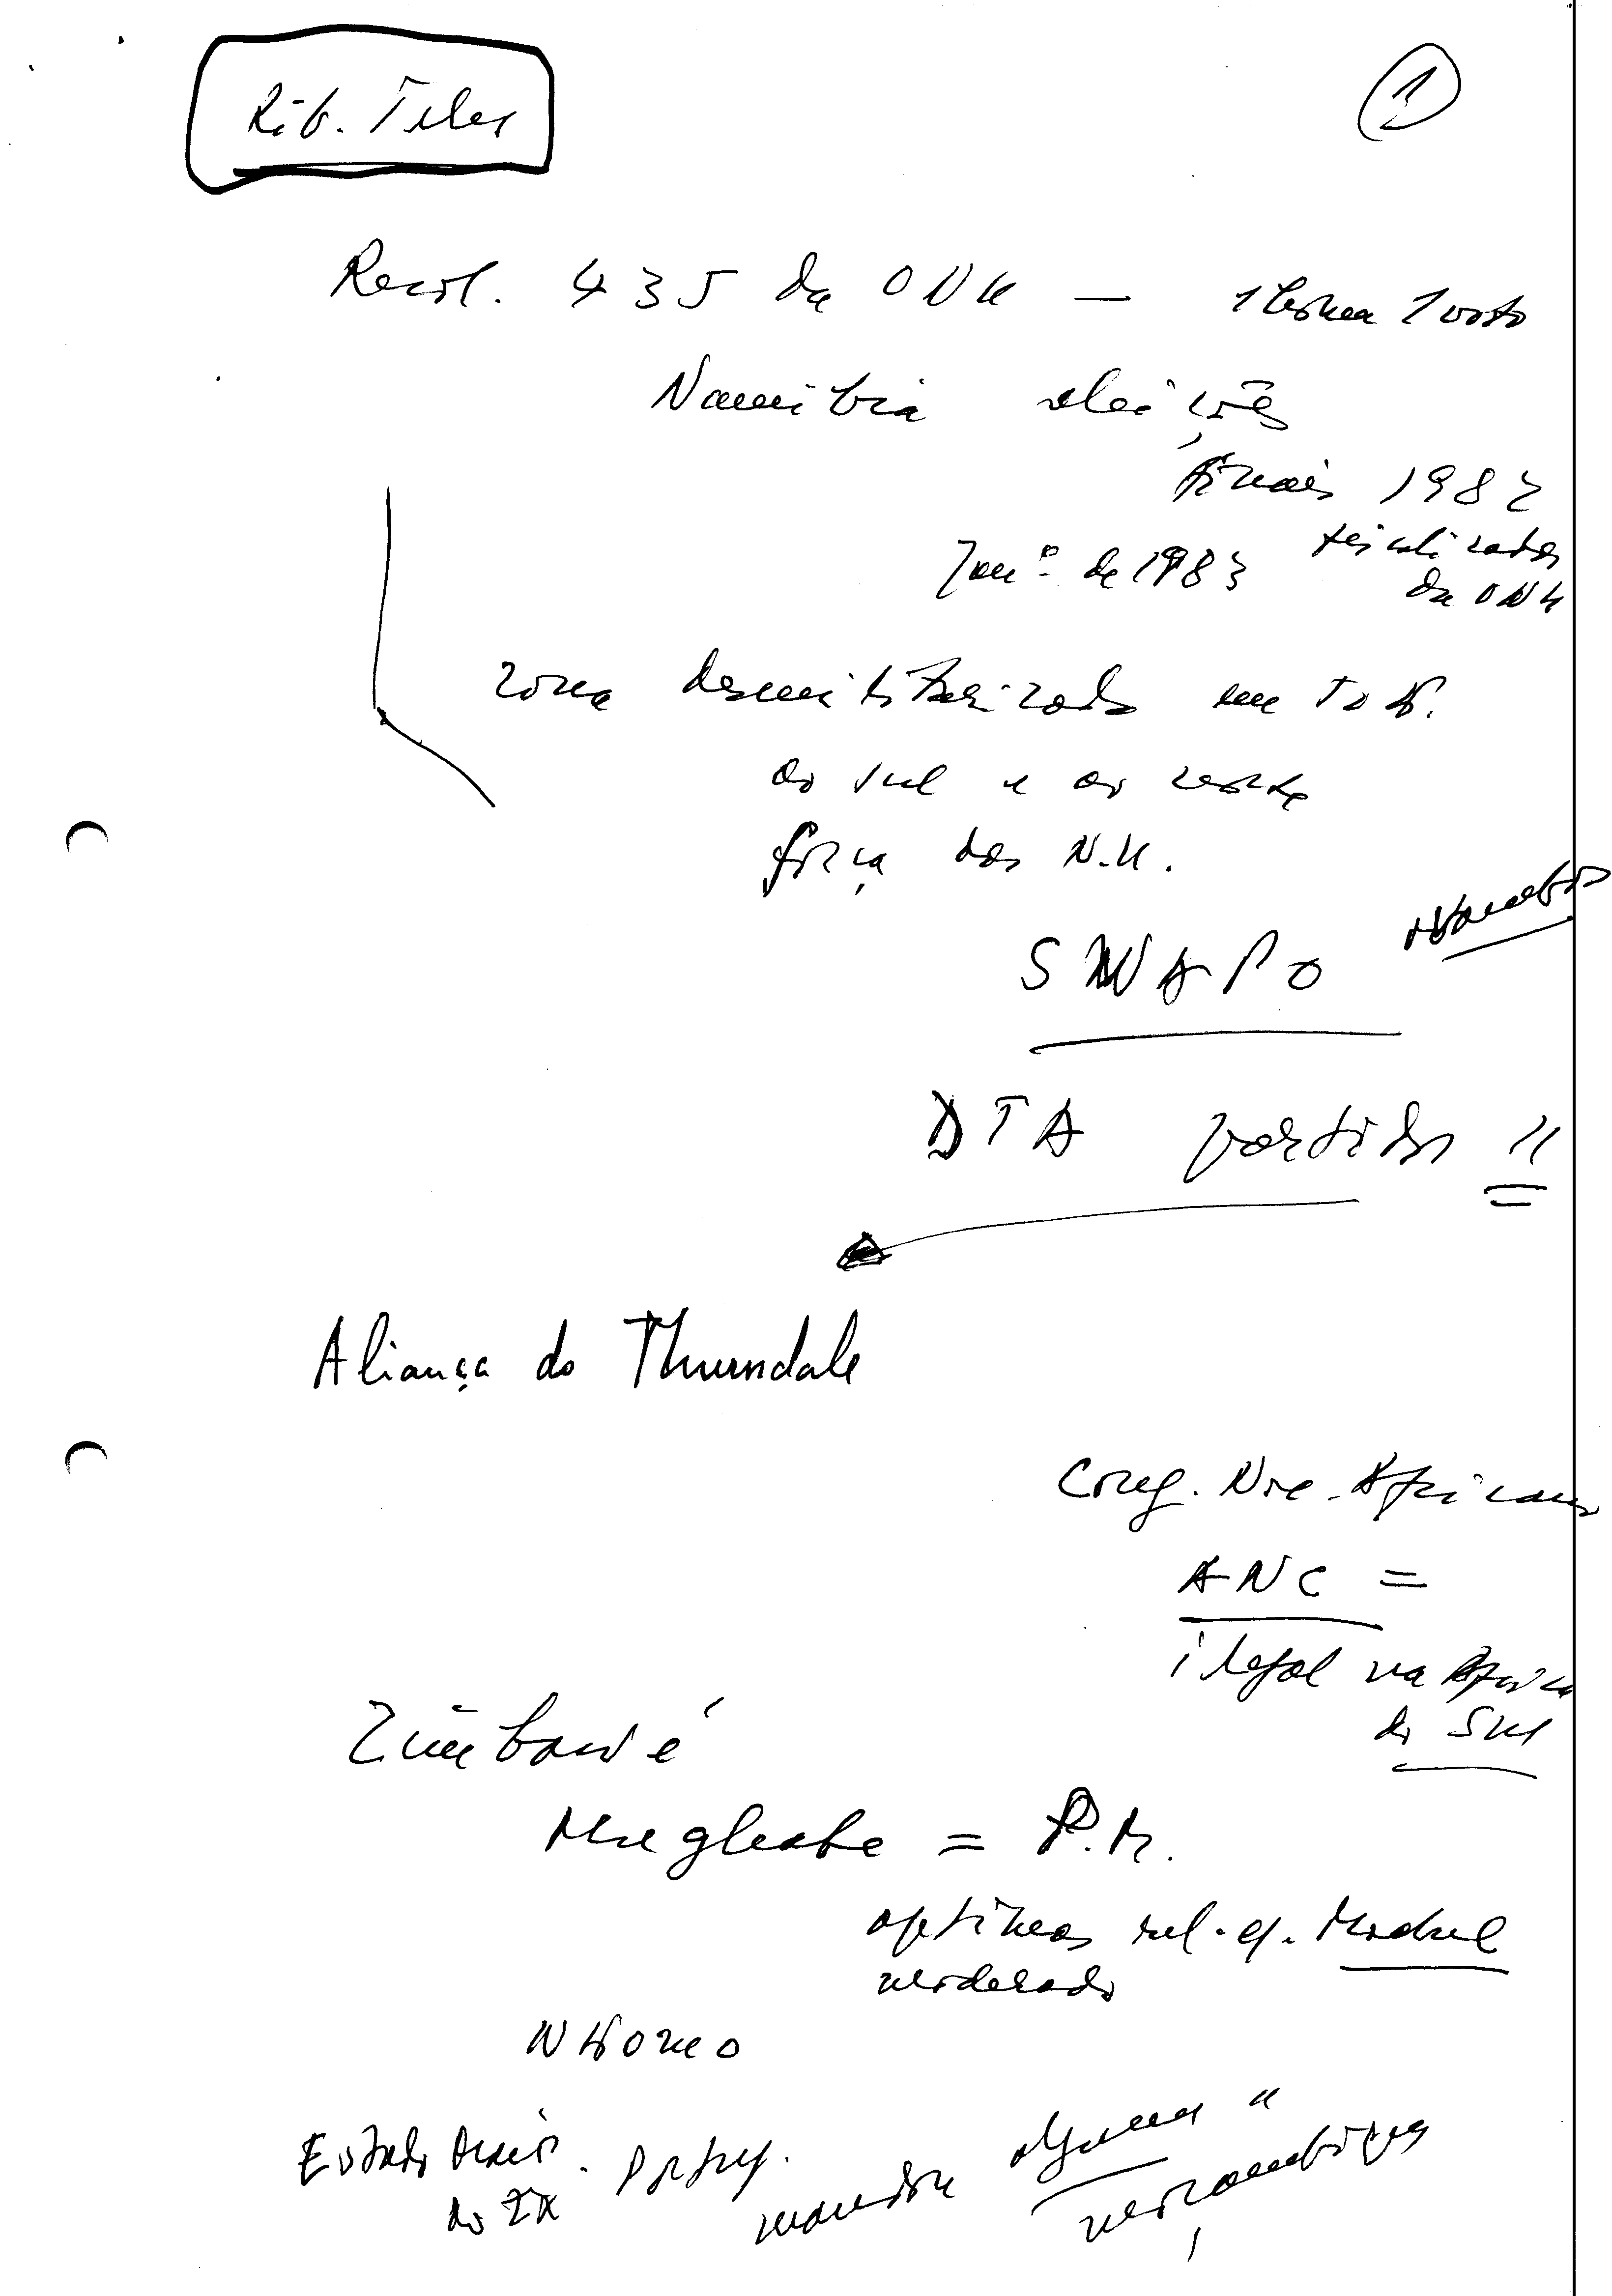 Rib. Teles
1
Resol. 435 da ONU — 1 homem 1 voto
Namíbia eleições
finais 1982
fiscalizadas
Janº de 1983
da ONU
zona desmilitarizada em
ao sul e ao norte
força das N.U.
SWAPO
DTA partidos "
Aliança do Thurndale
Cong. Nac. Africano
ANC =
ilegal na Africa
do Sul
Zimbawé
Mughabe = P.M.
optimas rel. c/. Machel
moderado
NKomo
Estado
do IX Portug. mandou alguma "